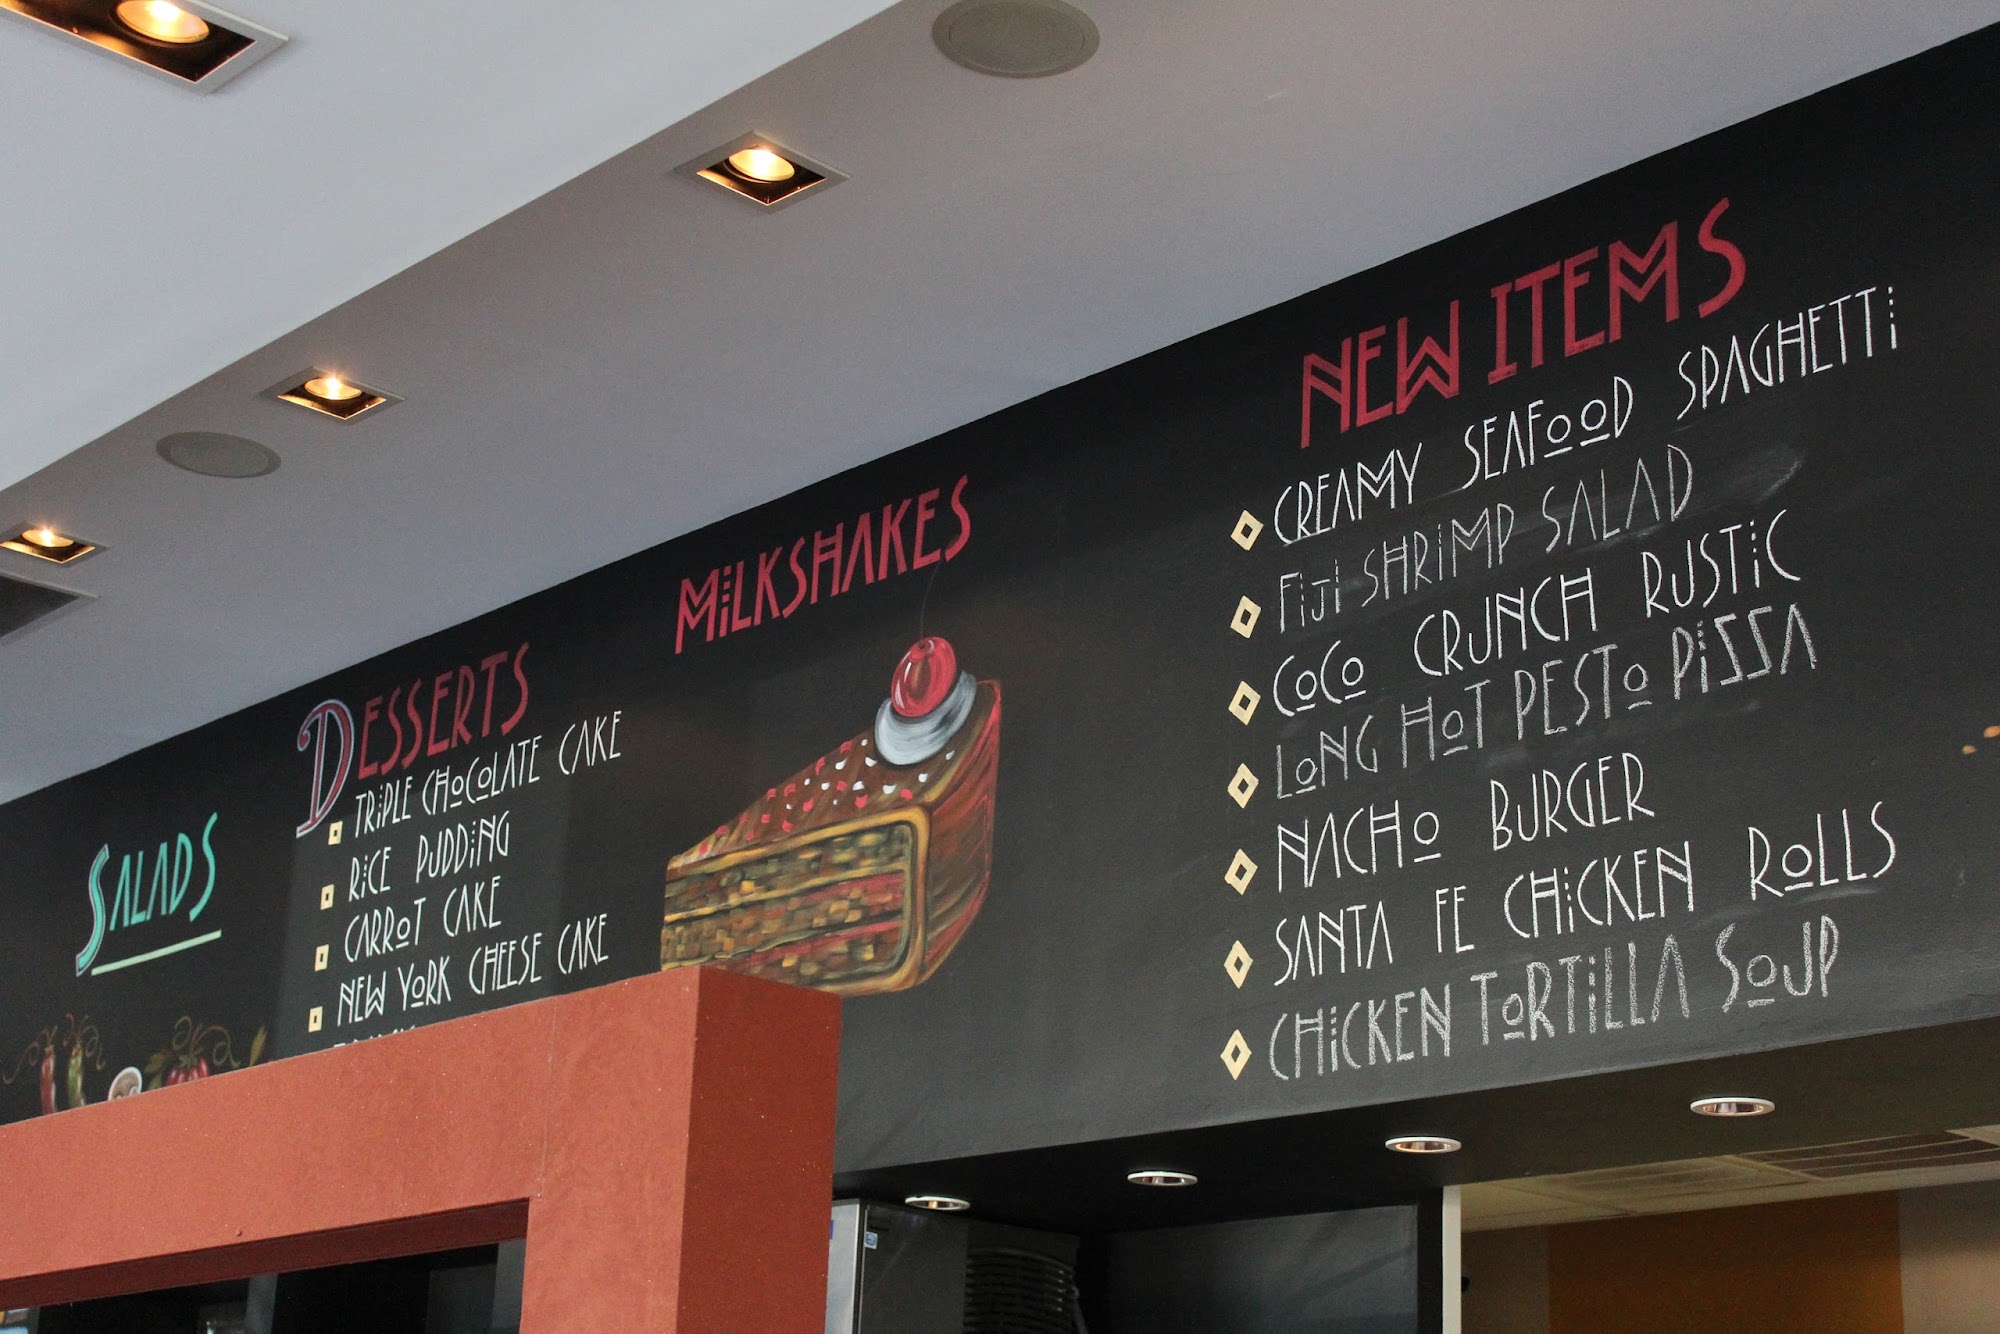 SALADS
DESSERTS
TRIPLE CHOCOLATE CAKE
RICE PUDDING
CARROT CAKE
NEW YORK CHEESE CAKE
MILKSHAKES
NEW ITEMS
CREAMY SEAFOOD SPAGHETTI
FIJI SHRIMP SALAD
COCO CRUNCH RUSTIC
LONG HOT PESTO PIZZA
NACHO BURGER
SANTA FE CHICKEN ROLLS
CHICKEN TORTILLA SOUP